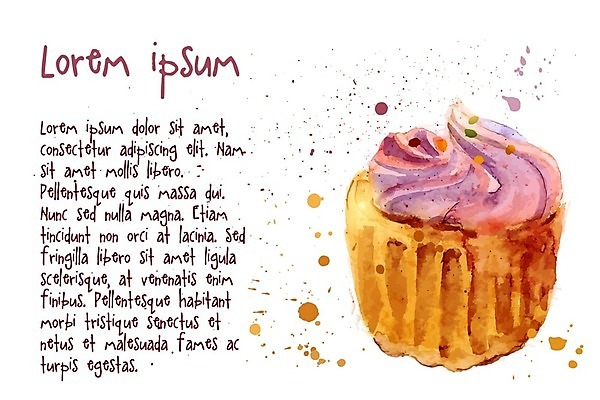 Lorem ipsum
Lorem ipsum dolor sit amet,
consectetur adipiscing elit. Nam
sit amet mollis libero.
Pellentesque quis massa dui.
Nunc sed nulla magna. Etiam
tincidunt non orci at lacinia. Sed
fringilla libero sit amet ligula
scelerisque, at venenatis enim
finibus. Pellentesque habitant
morbi tristique senectus et
netus et malesuada fames ac
turpis egestas.